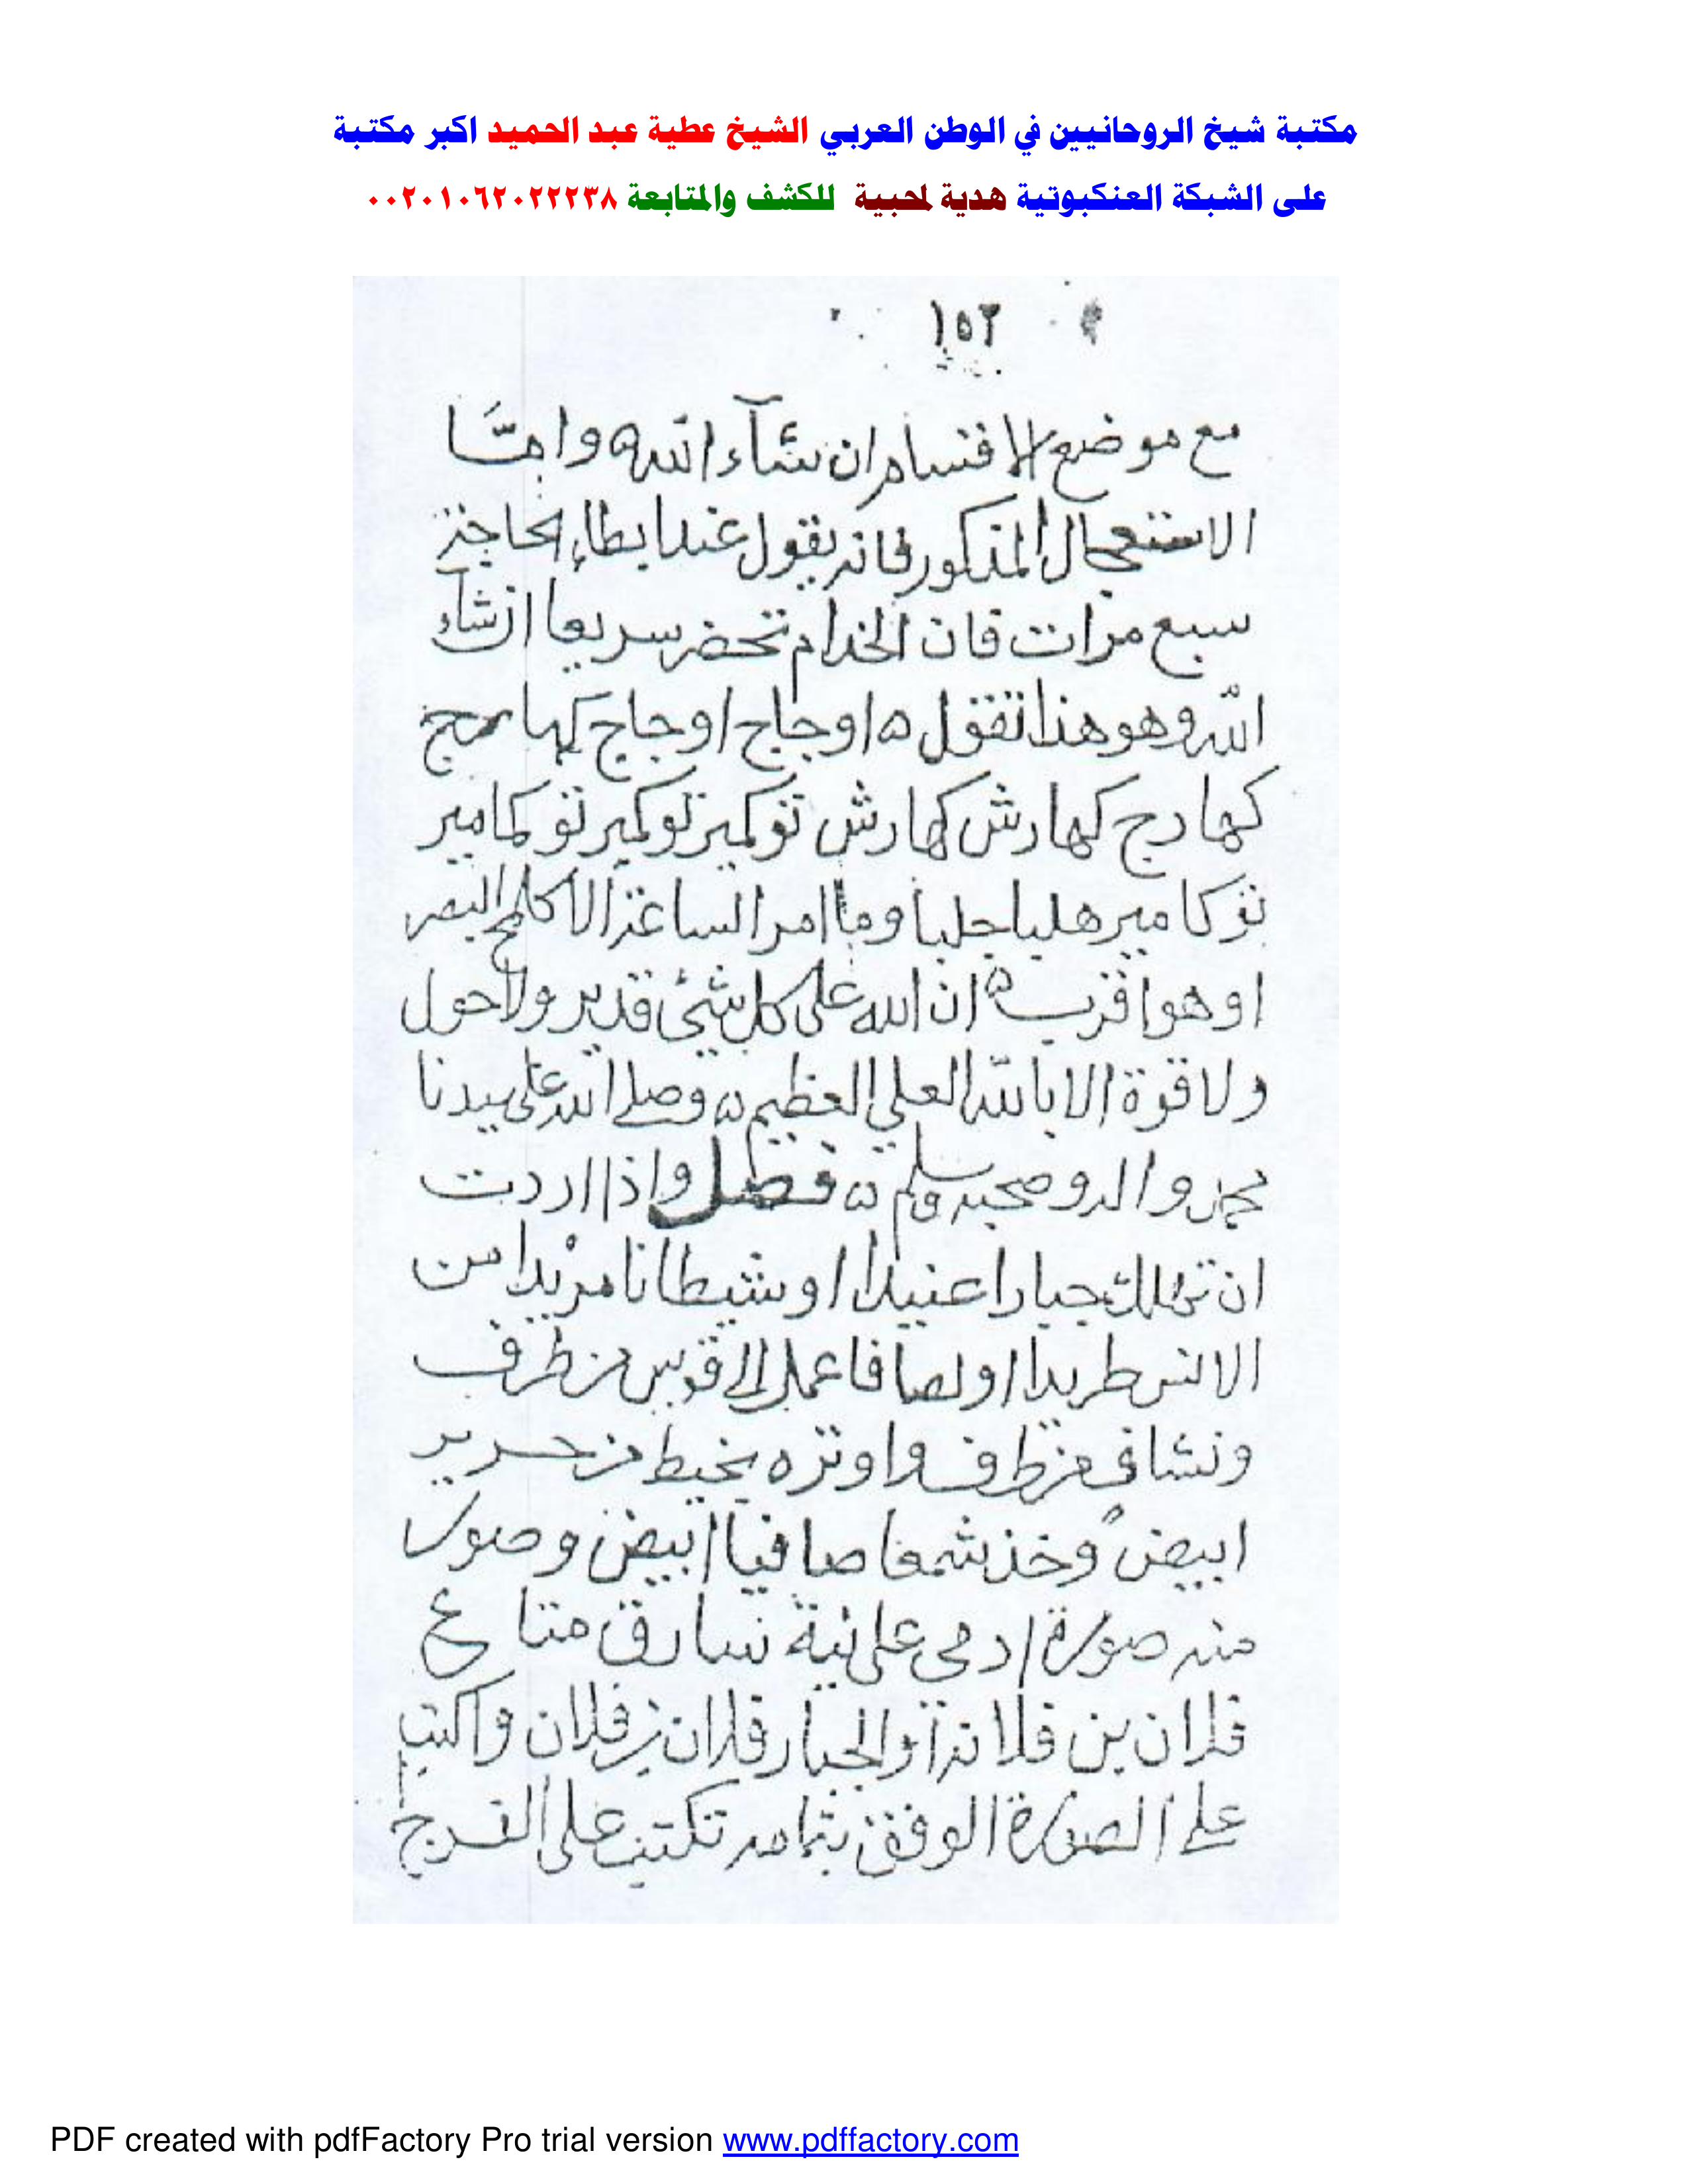 مكتبة شيخ الروحانيين في الوطن العربي الشيخ عطية عبد الحميد اكبر مكتبة
على الشبكة العنكبوتية هدية لمحبية للكشف والمتابعة ٠٠٢٠١٠٦٢٠٢٢٢٣٨
١٥٢
مع موضع الاقسام ان شآء الله وامّا
الاستعجال المذكور فانه يقول عند ابطاء الحاجة
سبع مرات فان الخدام تحضر سريعا انشاء
الله وهو هذا تقول ه اوجاج اوجاج كها
كهارج كهارش كهارش توكير توكير توكامير
توكامير هليا جليا وما امر الساعة الا كلمح البصر
او هو اقرب ه ان الله على كل شئ قدير ولا حول
ولا قوة الا بالله العلي العظيم ه وصلى الله على سيدنا
محمد واله وصحبه وسلم ه فصل واذا اردت
ان تهلك جبارا عنيدا او شيطانا مريدا من
الانس طريدا او لصا فاعمل الى قوس من طرف
ونشاف من طرف واوتره بخيط من حرير
ابيض وخذ شمعا صافيا ابيض وصور
منه صورة ادمي على نية سارق متاع
فلان بن فلانة او الجبار فلان بن فلان واكتب
على الصورة الوفق بتمامه تكتب على الفرج
PDF created with pdfFactory Pro trial version www.pdffactory.com